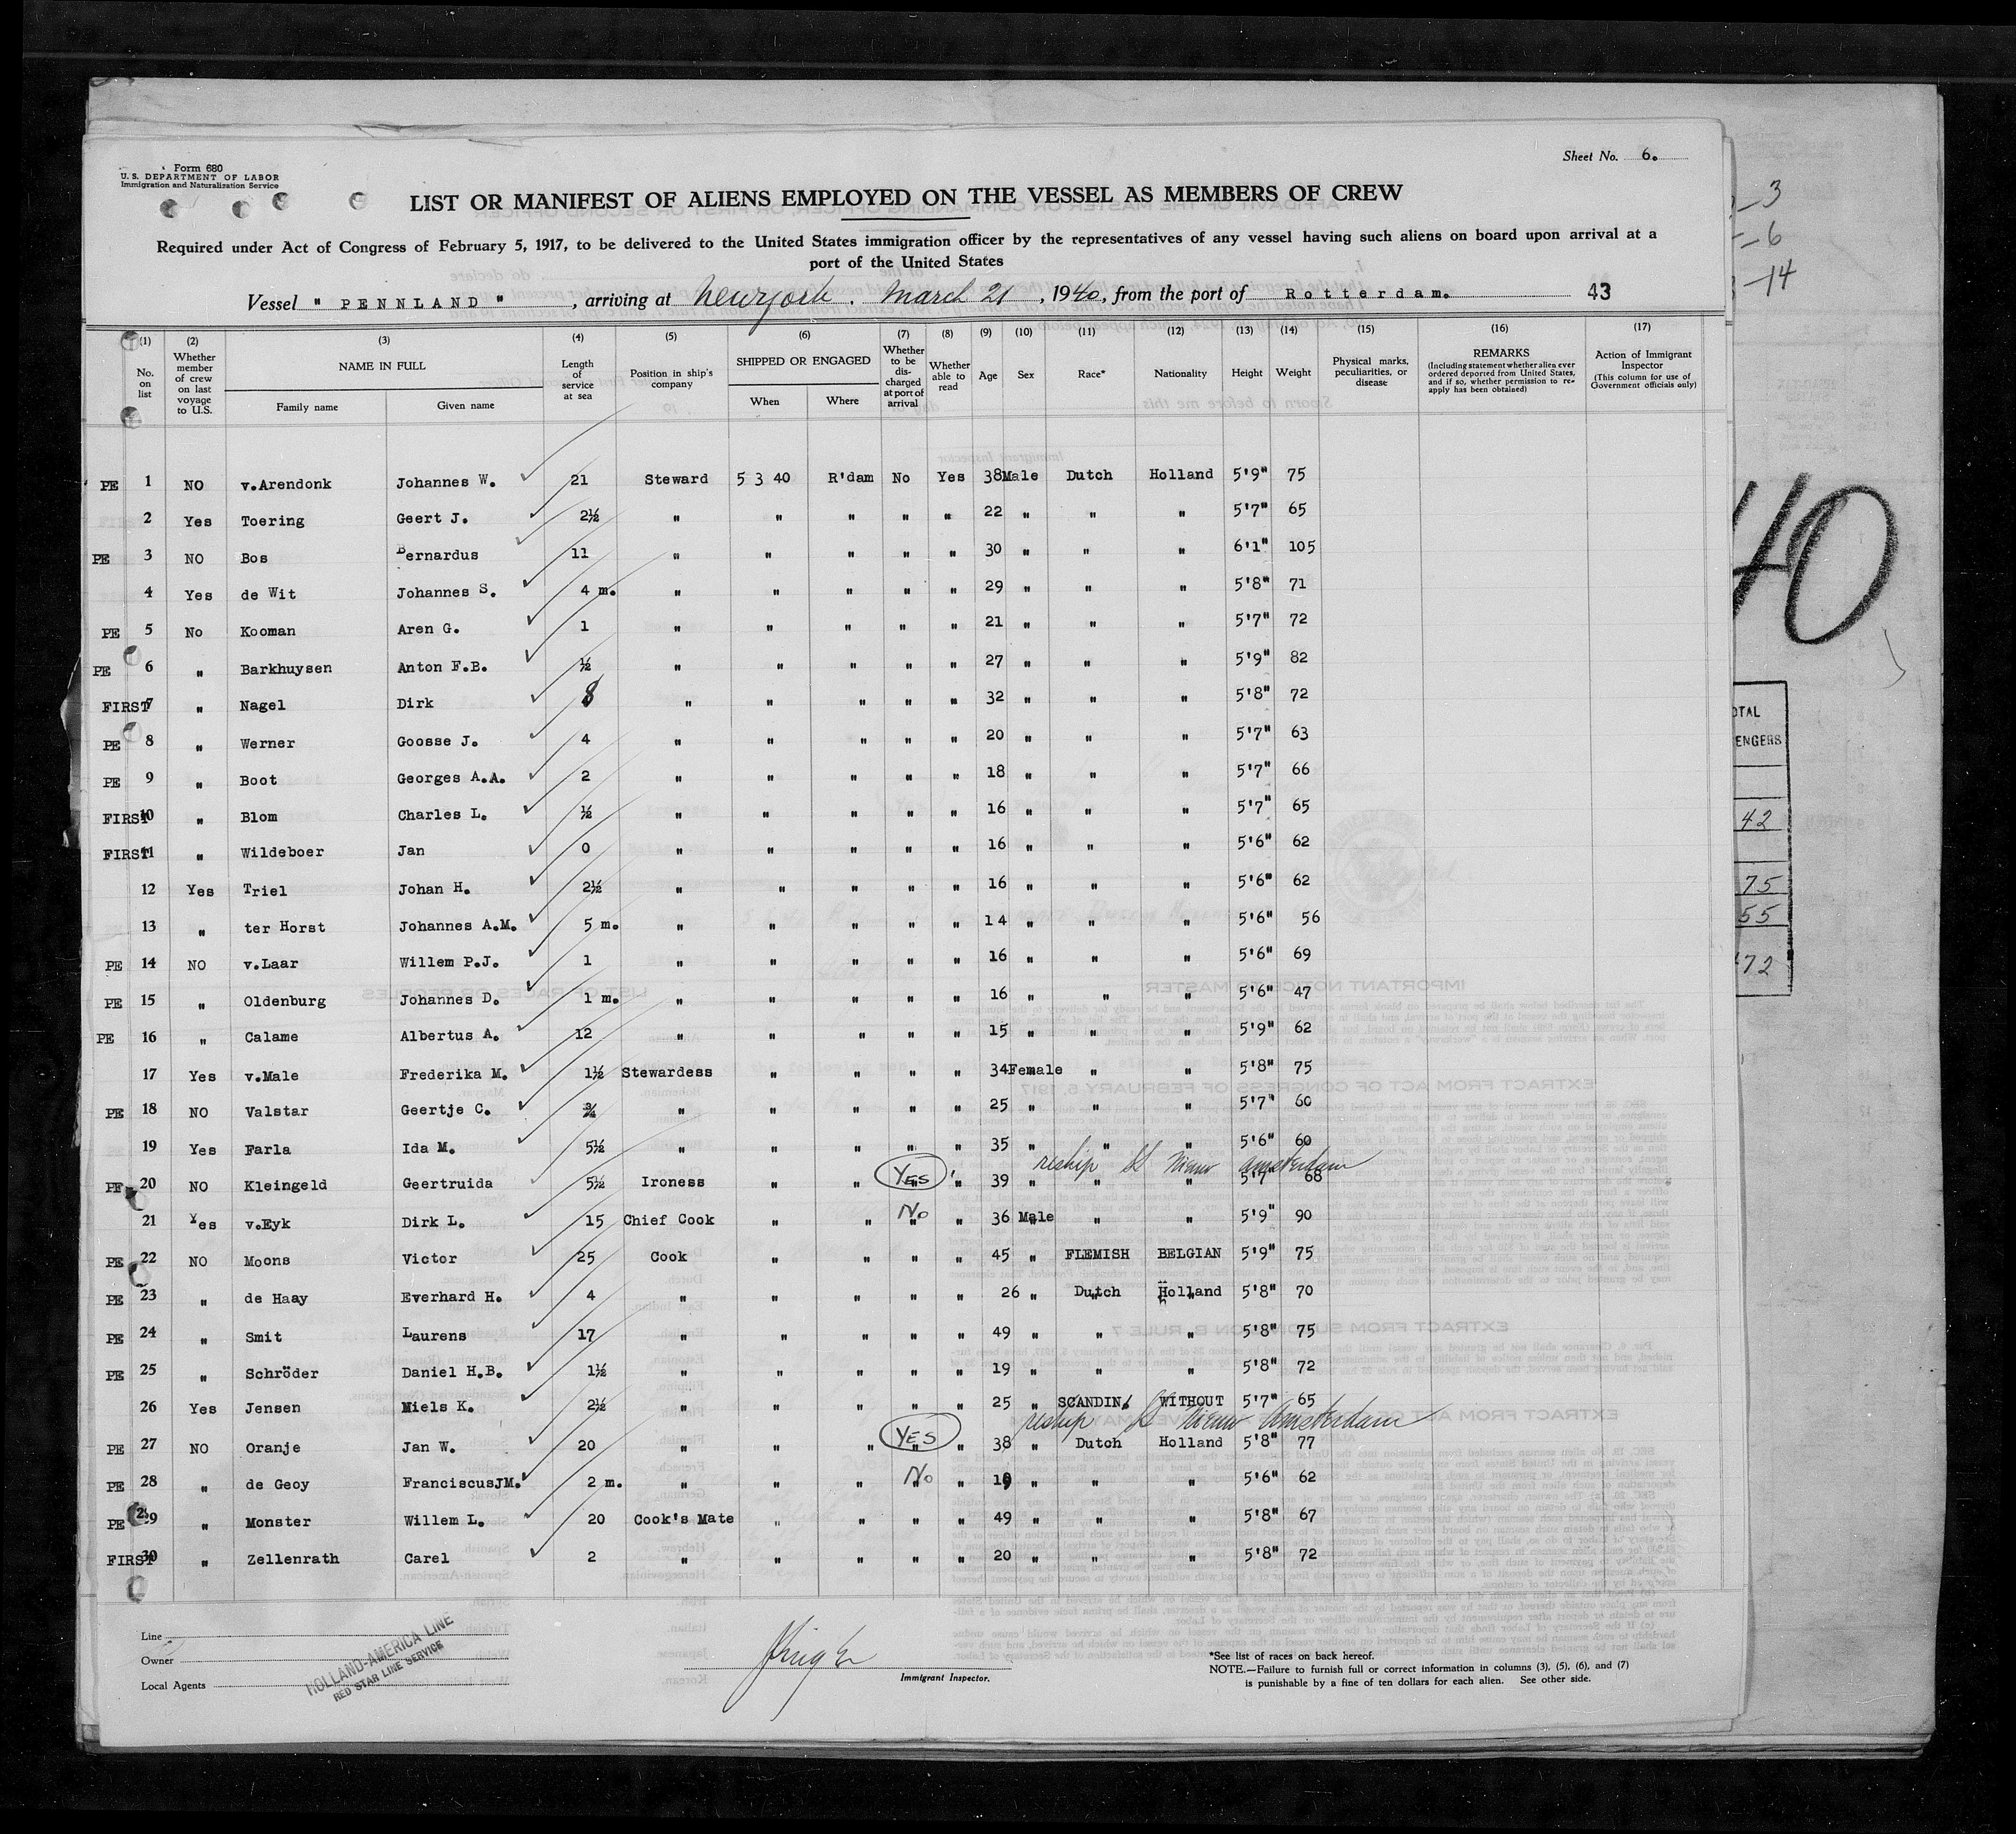 Form 680
U. S. DEPARTMENT OF LABOR
Immigration and Naturalization Service
Sheet No. 6.
LIST OR MANIFEST OF ALIENS EMPLOYED ON THE VESSEL AS MEMBERS OF CREW
Required under Act of Congress of February 5, 1917, to be delivered to the United States immigration officer by the representatives of any vessel having such aliens on board upon arrival at a
port of the United States
Vessel " PENNLAND ", arriving at New York, March 21, 1940, from the port of Rotterdam. 43
(1) (2) (3) (4) (5) (6) (7) (8) (9) (10) (11) (12) (13) (14) (15) (16) (17)
No. on list
Whether member of crew on last voyage to U.S.
NAME IN FULL
Family name Given name
Length of service at sea
Position in ship's company
SHIPPED OR ENGAGED
When Where
Whether to be discharged at port of arrival
Whether able to read
Age
Sex
Race*
Nationality
Height
Weight
Physical marks, peculiarities, or disease
REMARKS
(Including statement whether alien ever ordered deported from United States, and if so, whether permission to re-apply has been obtained)
Action of Immigrant Inspector
(This column for use of Government officials only)
PE 1 NO v.Arendonk Johannes W. 21 Steward 5 3 40 R'dam No Yes 38 Male Dutch Holland 5'9" 75
2 Yes Toering Geert J. 2½ " " " " " 22 " " " 5'7" 65
PE 3 NO Bos Bernardus 11 " " " " " 30 " " " 6'1" 105
4 Yes de Wit Johannes S. 4 m. " " " " " 29 " " " 5'8" 71
PE 5 No Kooman Aren G. 1 " " " " " 21 " " " 5'7" 72
PE 6 " Barkhuysen Anton F.B. ½ " " " " " 27 " " " 5'9" 82
FIRST 7 " Nagel Dirk 8 " " " " " 32 " " " 5'8" 72
PE 8 " Werner Goosse J. 4 " " " " " 20 " " " 5'7" 63
PE 9 " Boot Georges A.A. 2 " " " " " 18 " " " 5'7" 66
FIRST 10 " Blom Charles L. ½ " " " " " 16 " " " 5'7" 65
FIRST 11 " Wildeboer Jan 0 " " " " " 16 " " " 5'6" 62
12 Yes Triel Johan H. 2½ " " " " " 16 " " " 5'6" 62
13 " ter Horst Johannes A.M. 5 m. " " " " " 14 " " " 5'6" 56
PE 14 NO v.Laar Willem P.J. 1 " " " " " 16 " " " 5'6" 69
PE 15 " Oldenburg Johannes D. 1 m. " " " " " 16 " " " 5'6" 47
PE 16 " Calame Albertus A. 12 " " " " " 15 " " " 5'9" 62
17 Yes v.Male Frederika M. 1½ Stewardess " " " " 34 Female " " 5'8" 75
PE 18 NO Valstar Geertje C. ¾ " " " " " 25 " " " 5'7" 60
19 Yes Farla Ida M. 5½ " " " " " 35 " " " 5'6" 60
reship SS Nieuw Amsterdam
PE 20 NO Kleingeld Geertruida 5½ Ironess " " YES " 39 " " " 5'7" 68
21 Yes v.Eyk Dirk L. 15 Chief Cook " " No " 36 Male " " 5'9" 90
PE 22 NO Moons Victor 25 Cook " " " " 45 " FLEMISH BELGIAN 5'9" 75
PE 23 " de Haay Everhard H. 4 " " " " " 26 " Dutch Holland 5'8" 70
PE 24 " Smit Laurens 17 " " " " " 49 " " " 5'8" 75
PE 25 " Schröder Daniel H.B. 1½ " " " " " 19 " " " 5'8" 72
26 Yes Jensen Niels K. 2½ " " " " " 25 " SCANDIN. WITHOUT 5'7" 65
reship SS Nieuw Amsterdam
PE 27 NO Oranje Jan W. 20 " " " YES " 38 " Dutch Holland 5'8" 77
PE 28 " de Geoy FranciscusJM. 2 m. " " " No " 19 " " " 5'6" 62
PE 29 " Monster Willem L. 20 Cook's Mate " " " " 49 " " " 5'8" 67
FIRST 30 " Zellenrath Carel 2 " " " " " 20 " " " 5'8" 72
Line
Owner
Local Agents
HOLLAND-AMERICA LINE
RED STAR LINE SERVICE
Immigrant Inspector.
*See list of races on back hereof.
NOTE.—Failure to furnish full or correct information in columns (3), (5), (6), and (7)
is punishable by a fine of ten dollars for each alien. See other side.
3
6
14
40
42
75
55
72